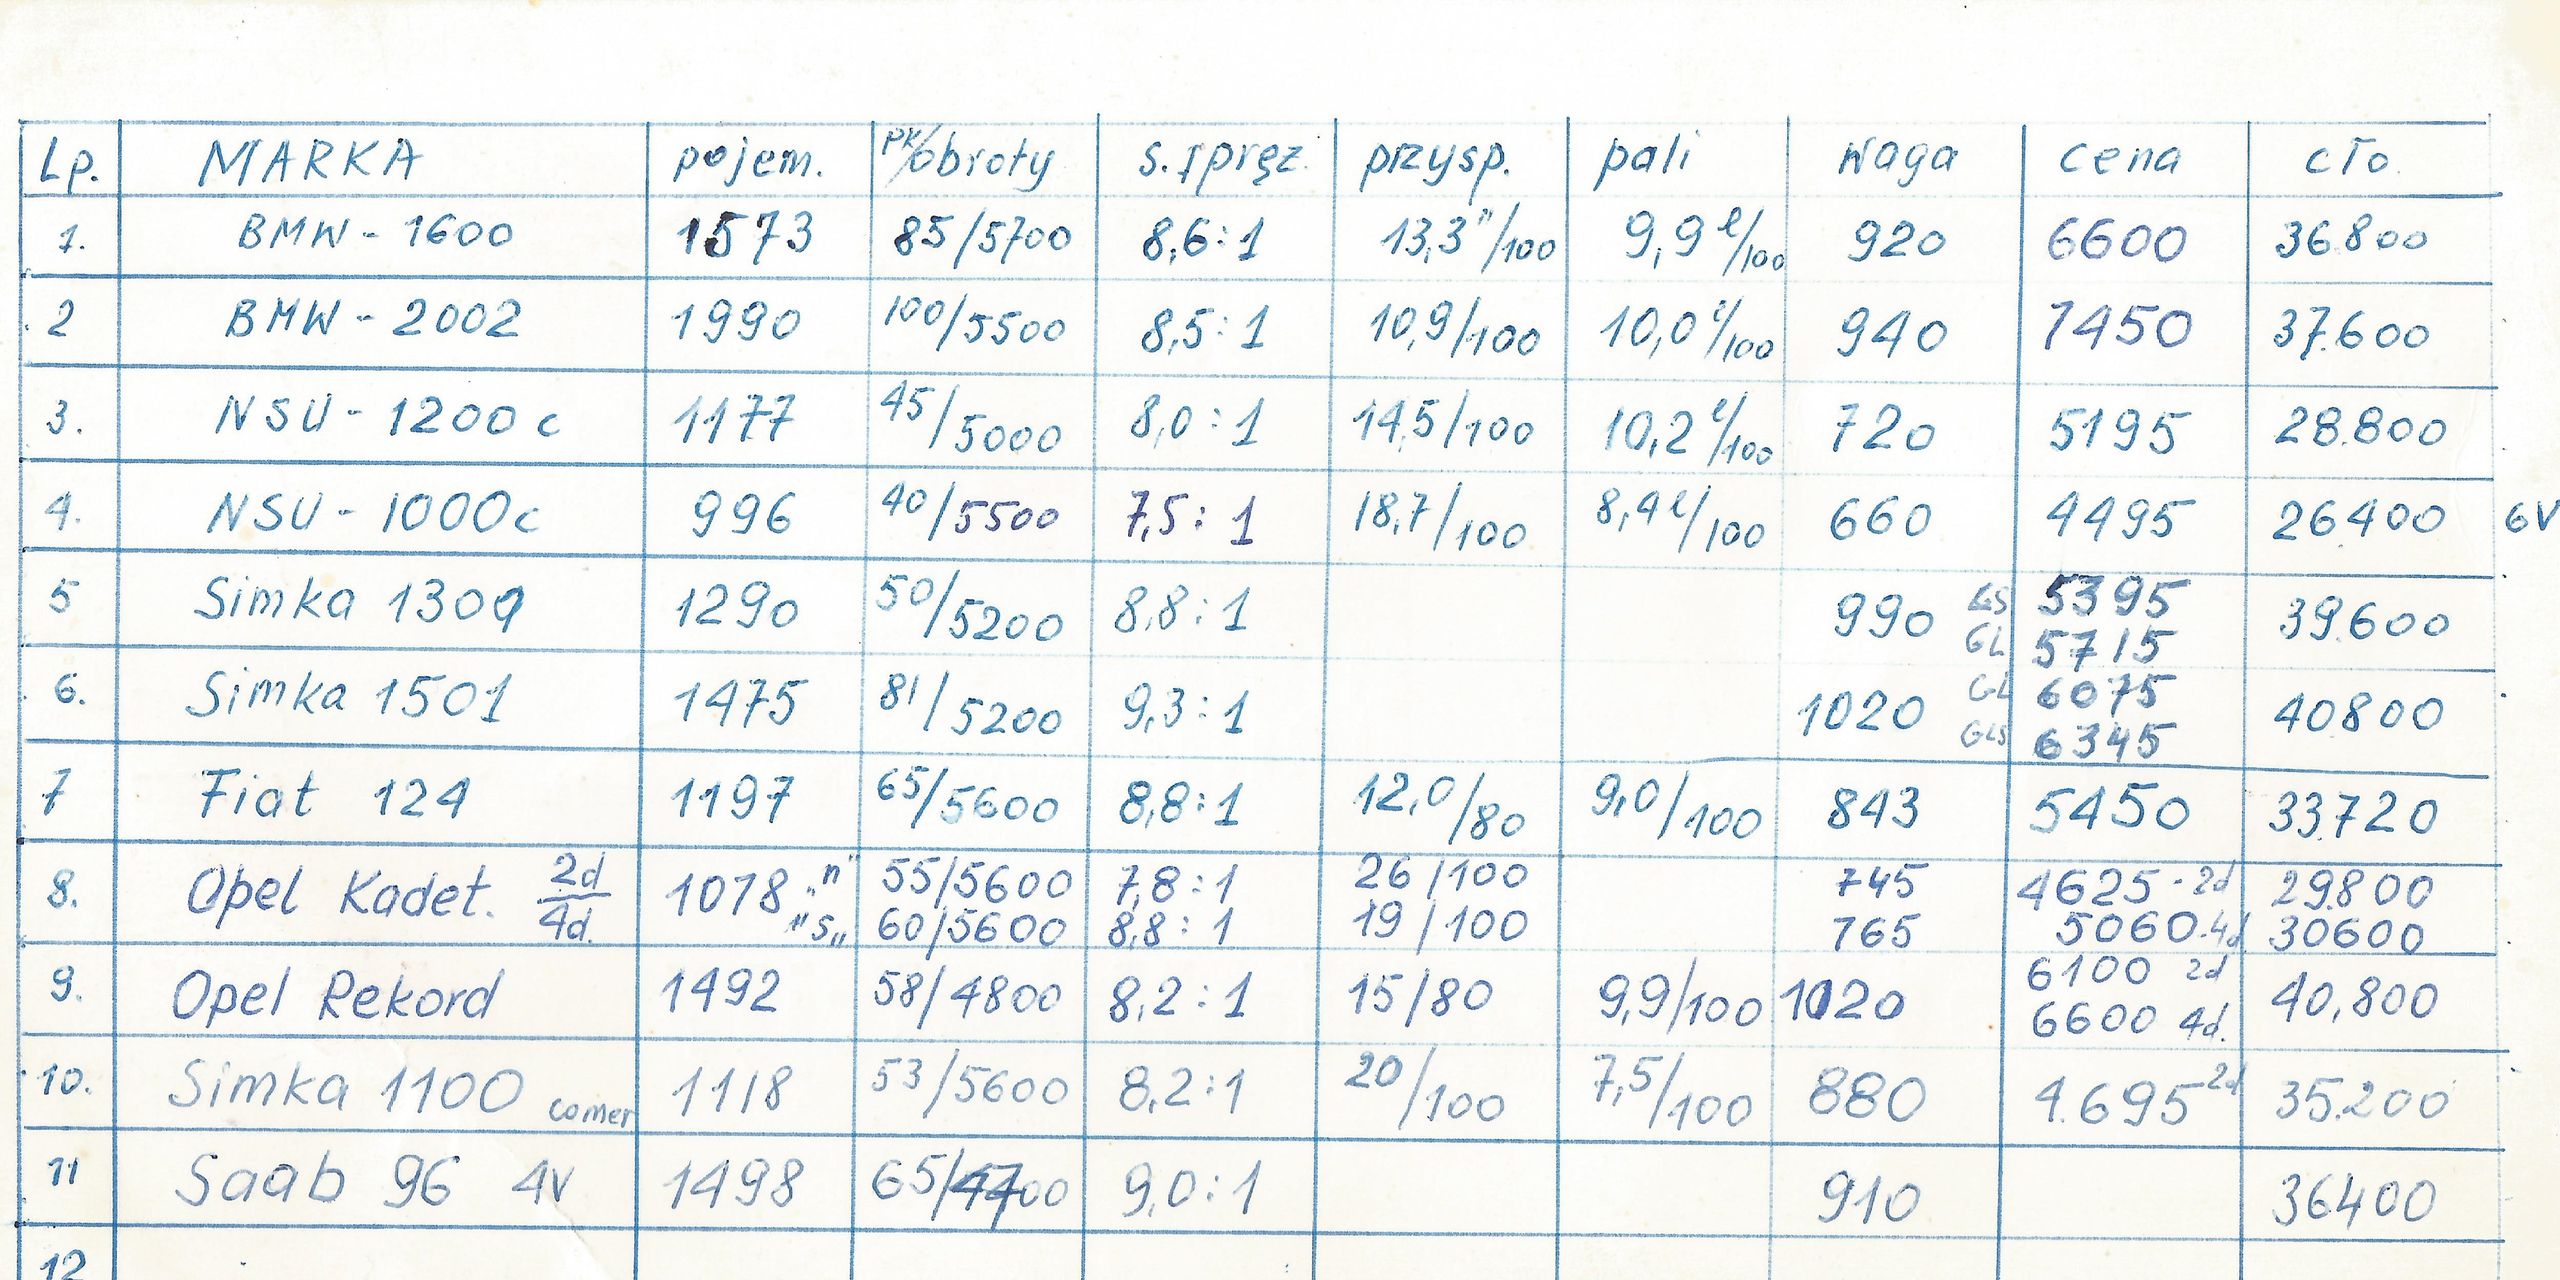 Lp. MARKA pojem. pk/obroty s. spręż. przysp. pali waga cena cło.
1. BMW - 1600 1573 85/5700 8,6:1 13,3"/100 9,9 l/100 920 6600 36.800
2 BMW - 2002 1990 100/5500 8,5:1 10,9/100 10,0 l/100 940 7450 37.600
3. NSU - 1200 c 1177 45/5000 8,0:1 14,5/100 10,2 l/100 720 5195 28.800
4. NSU - 1000c 996 40/5500 7,5:1 18,7/100 8,4 l/100 660 4495 26.400 6V
5 Simka 1290 50/5200 8,8:1 990 5395 39.600
GL 5715
6. Simka 1501 1475 81/5200 9,3:1 1020 GL 6075 40800
GLS 6345
7 Fiat 124 1197 65/5600 8,8:1 12,0/80 9,0/100 843 5450 33.720
8. Opel Kadet. 2d/4d. 1078 „n" 55/5600 7,8:1 26/100 745 4625 - 2d 29.800
"s„ 60/5600 8,8:1 19/100 765 5060.4d 30600
9. Opel Rekord 1492 58/4800 8,2:1 15/80 9,9/100 1020 6100 2d 40,800
6600 4d.
10. Simka 1100 comer 1118 53/5600 8,2:1 20/100 7,5/100 880 4.695 2d 35.200
11 Saab 96 4v 1498 9,0:1 910 36400
12